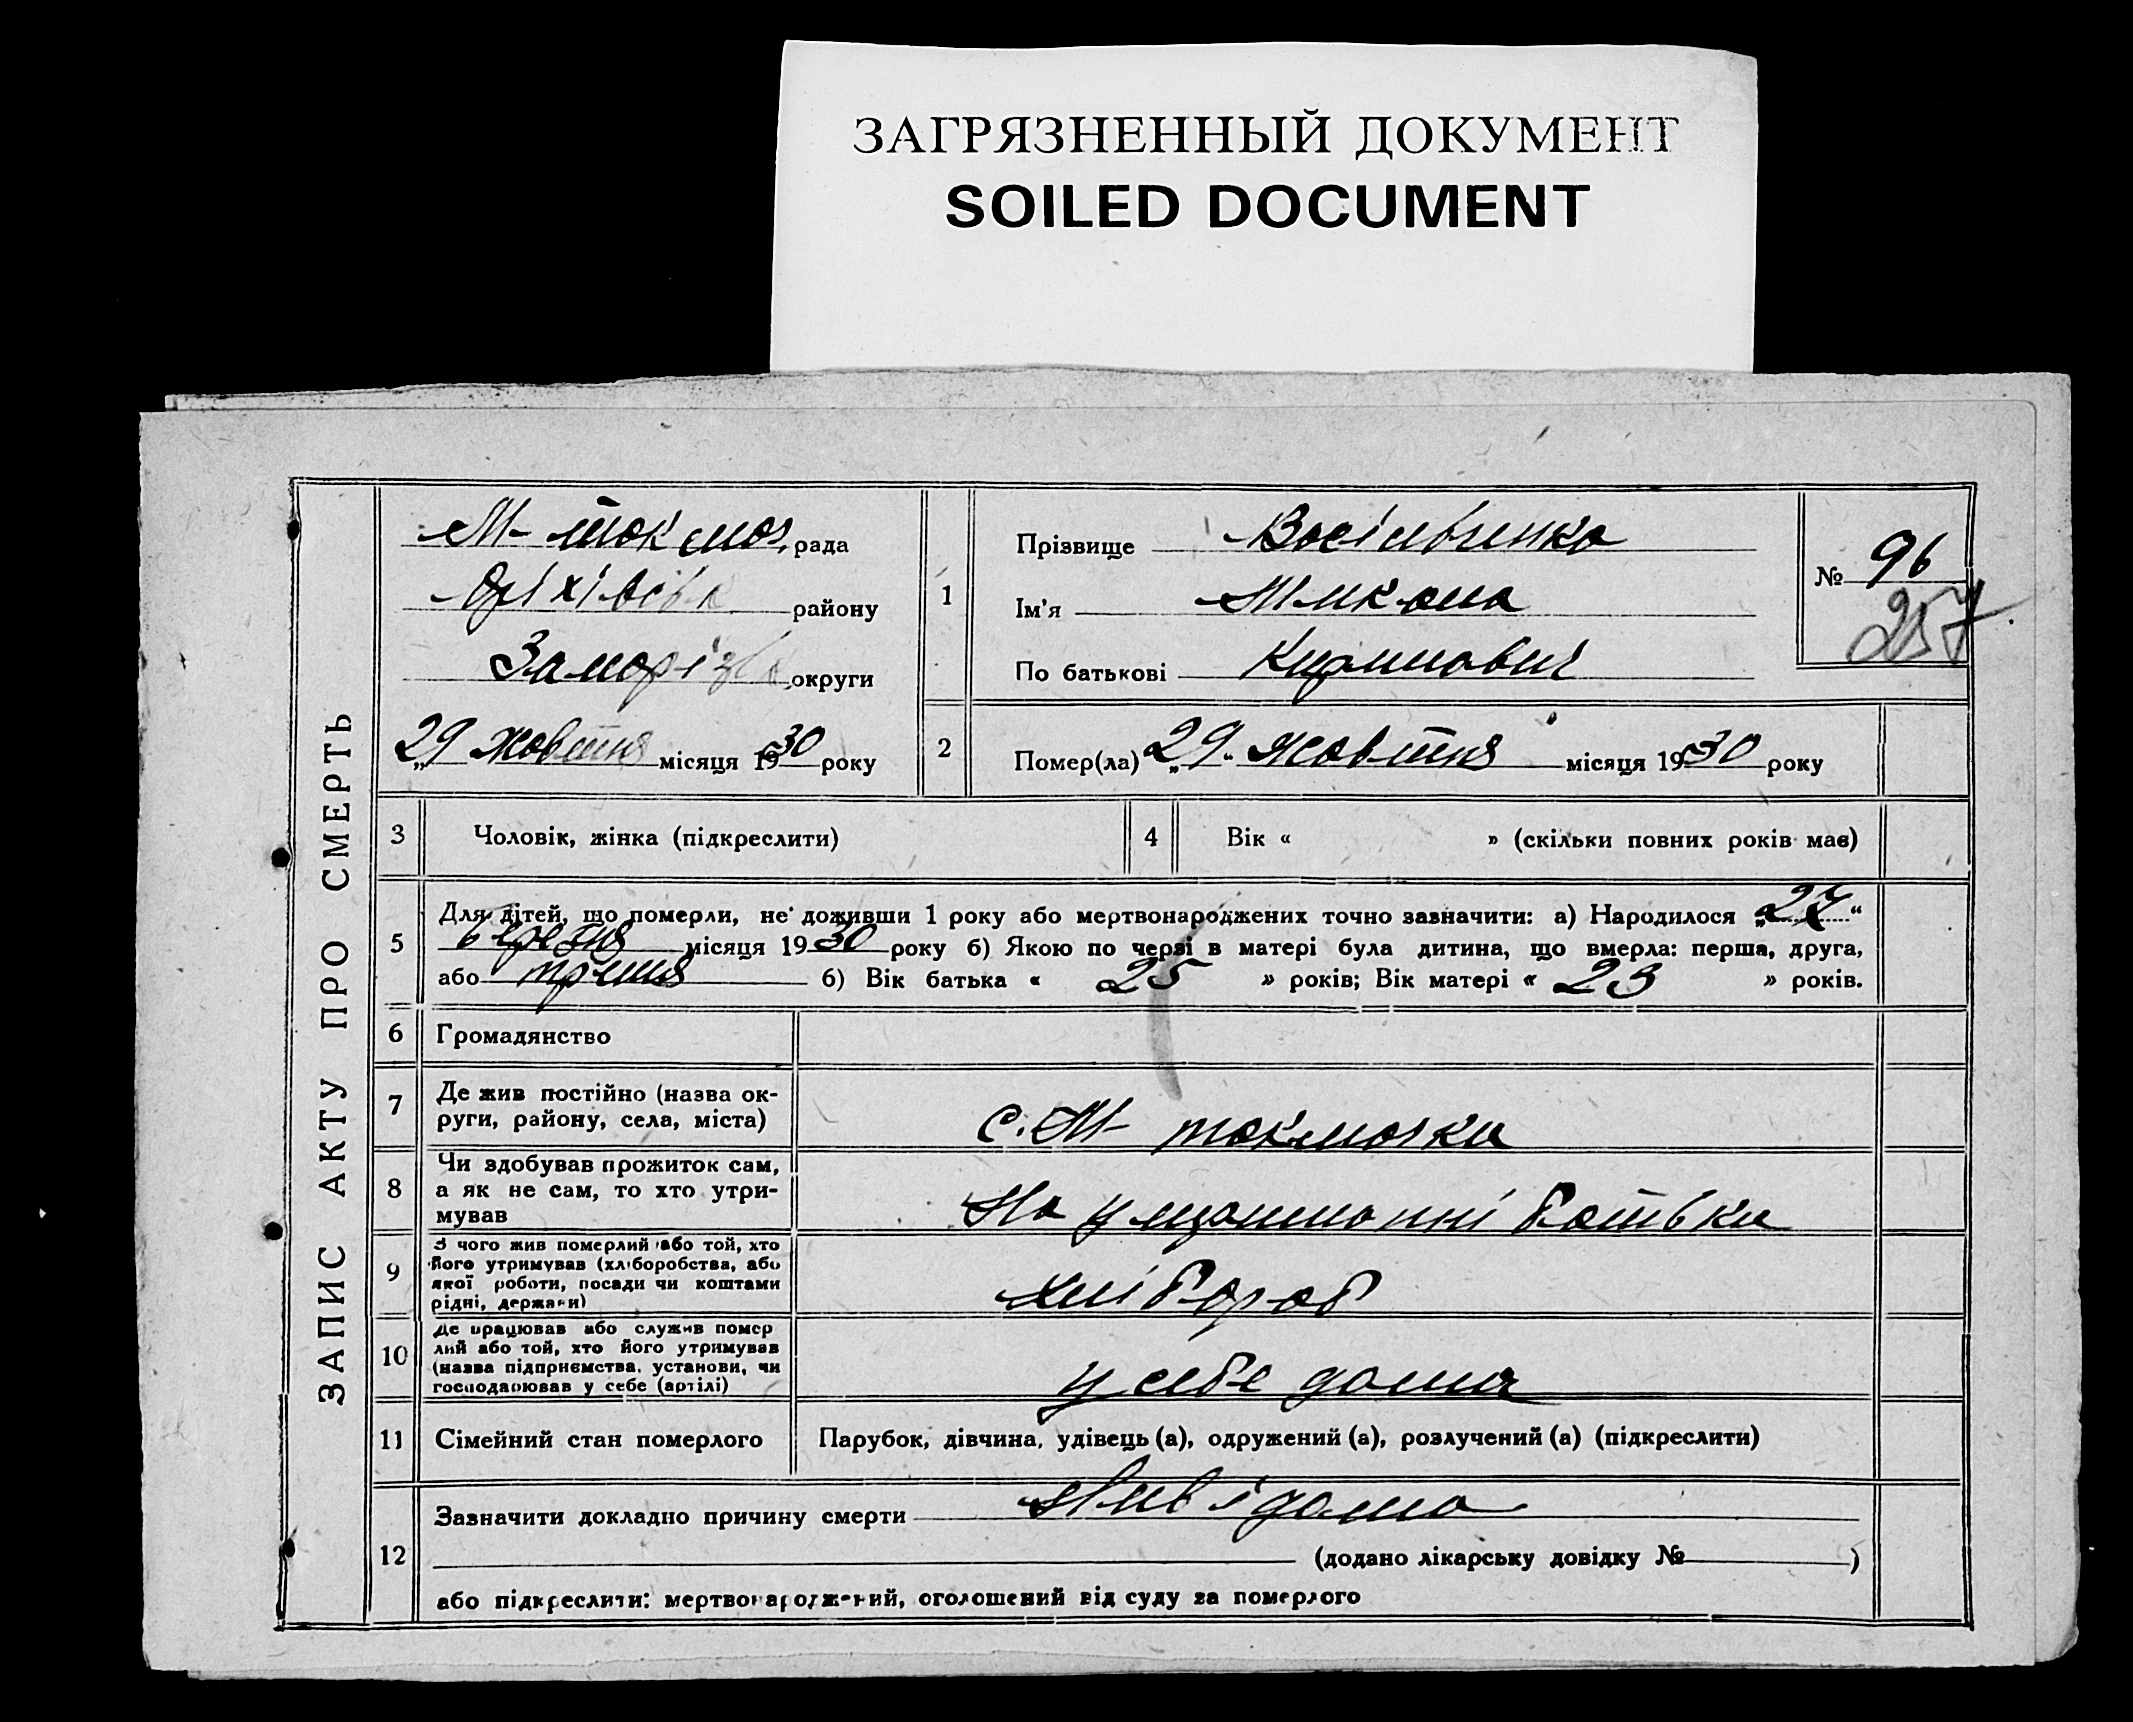 ЗАГРЯЗНЕННЫЙ ДОКУМЕНТ
SOILED DOCUMENT
ЗАПИС АКТУ ПРО СМЕРТЬ
М-токмач. рада
Оріхівсь району
Запоріз округи
„29 жовтня місяця 1930 року
1
Прізвище Васільченко
Ім'я Микола
По батькові
№ 96
257
2 Помер(ла) „29“ жовтня місяця 1930 року
3 Чоловік, жінка (підкреслити)
4 Вік « » (скільки повних років має)
5 Для дітей, що померли, не доживши 1 року або мертвонароджених точно зазначити: а) Народилося „27“
березня місяця 1930 року б) Якою по черзі в матері була дитина, що вмерла: перша, друга,
або третя б) Вік батька « 25 » років; Вік матері « 23 » років.
6 Громадянство
7 Де жив постійно (назва ок-
руги, району, села, міста)
с. М-токмачки
8 Чи здобував прожиток сам,
а як не сам, то хто утри-
мував
На утриманні батьки
9 З чого жив померлий або той, хто
його утримував (хліборобства, або
якої роботи, посади чи коштами
рідні, держави)
хлібороб
10 Де працював або служив помер
лий або той, хто його утримував
(назва підприємства, установи, чи
господарював у себе (артілі)
у себе дома
11 Сімейний стан померлого
Парубок, дівчина, удівець (а), одружений (а), розлучений (а) (підкреслити)
12 Зазначити докладно причину смерти Невідома
(додано лікарську довідку № )
або підкреслити: мертвонароджений, оголошений від суду за померлого